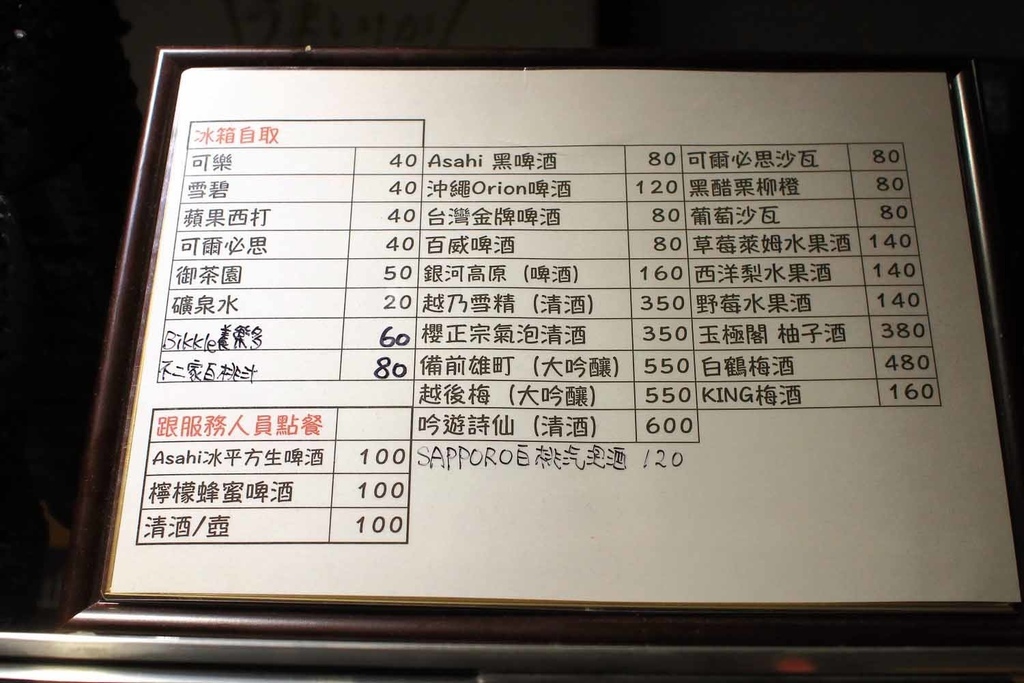 冰箱自取
可樂 40
雪碧 40
蘋果西打 40
可爾必思 40
御茶園 50
礦泉水 20
Bikkle養樂多 60
不二家白桃汁 80
跟服務人員點餐
Asahi冰平方生啤酒 100
檸檬蜂蜜啤酒 100
清酒/壺 100
Asahi 黑啤酒 80
沖繩Orion啤酒 120
台灣金牌啤酒 80
百威啤酒 80
銀河高原 (啤酒) 160
越乃雪精 (清酒) 350
櫻正宗氣泡清酒 350
備前雄町 (大吟釀) 550
越後梅 (大吟釀) 550
吟遊詩仙 (清酒) 600
SAPPORO白桃汽泡酒 120
可爾必思沙瓦 80
黑醋栗柳橙 80
葡萄沙瓦 80
草莓萊姆水果酒 140
西洋梨水果酒 140
野莓水果酒 140
玉極閣 柚子酒 380
白鶴梅酒 480
KING梅酒 160